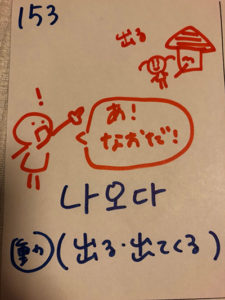 153
出る
!
あ!
なおだ!
나오다
動(出る・出てくる)